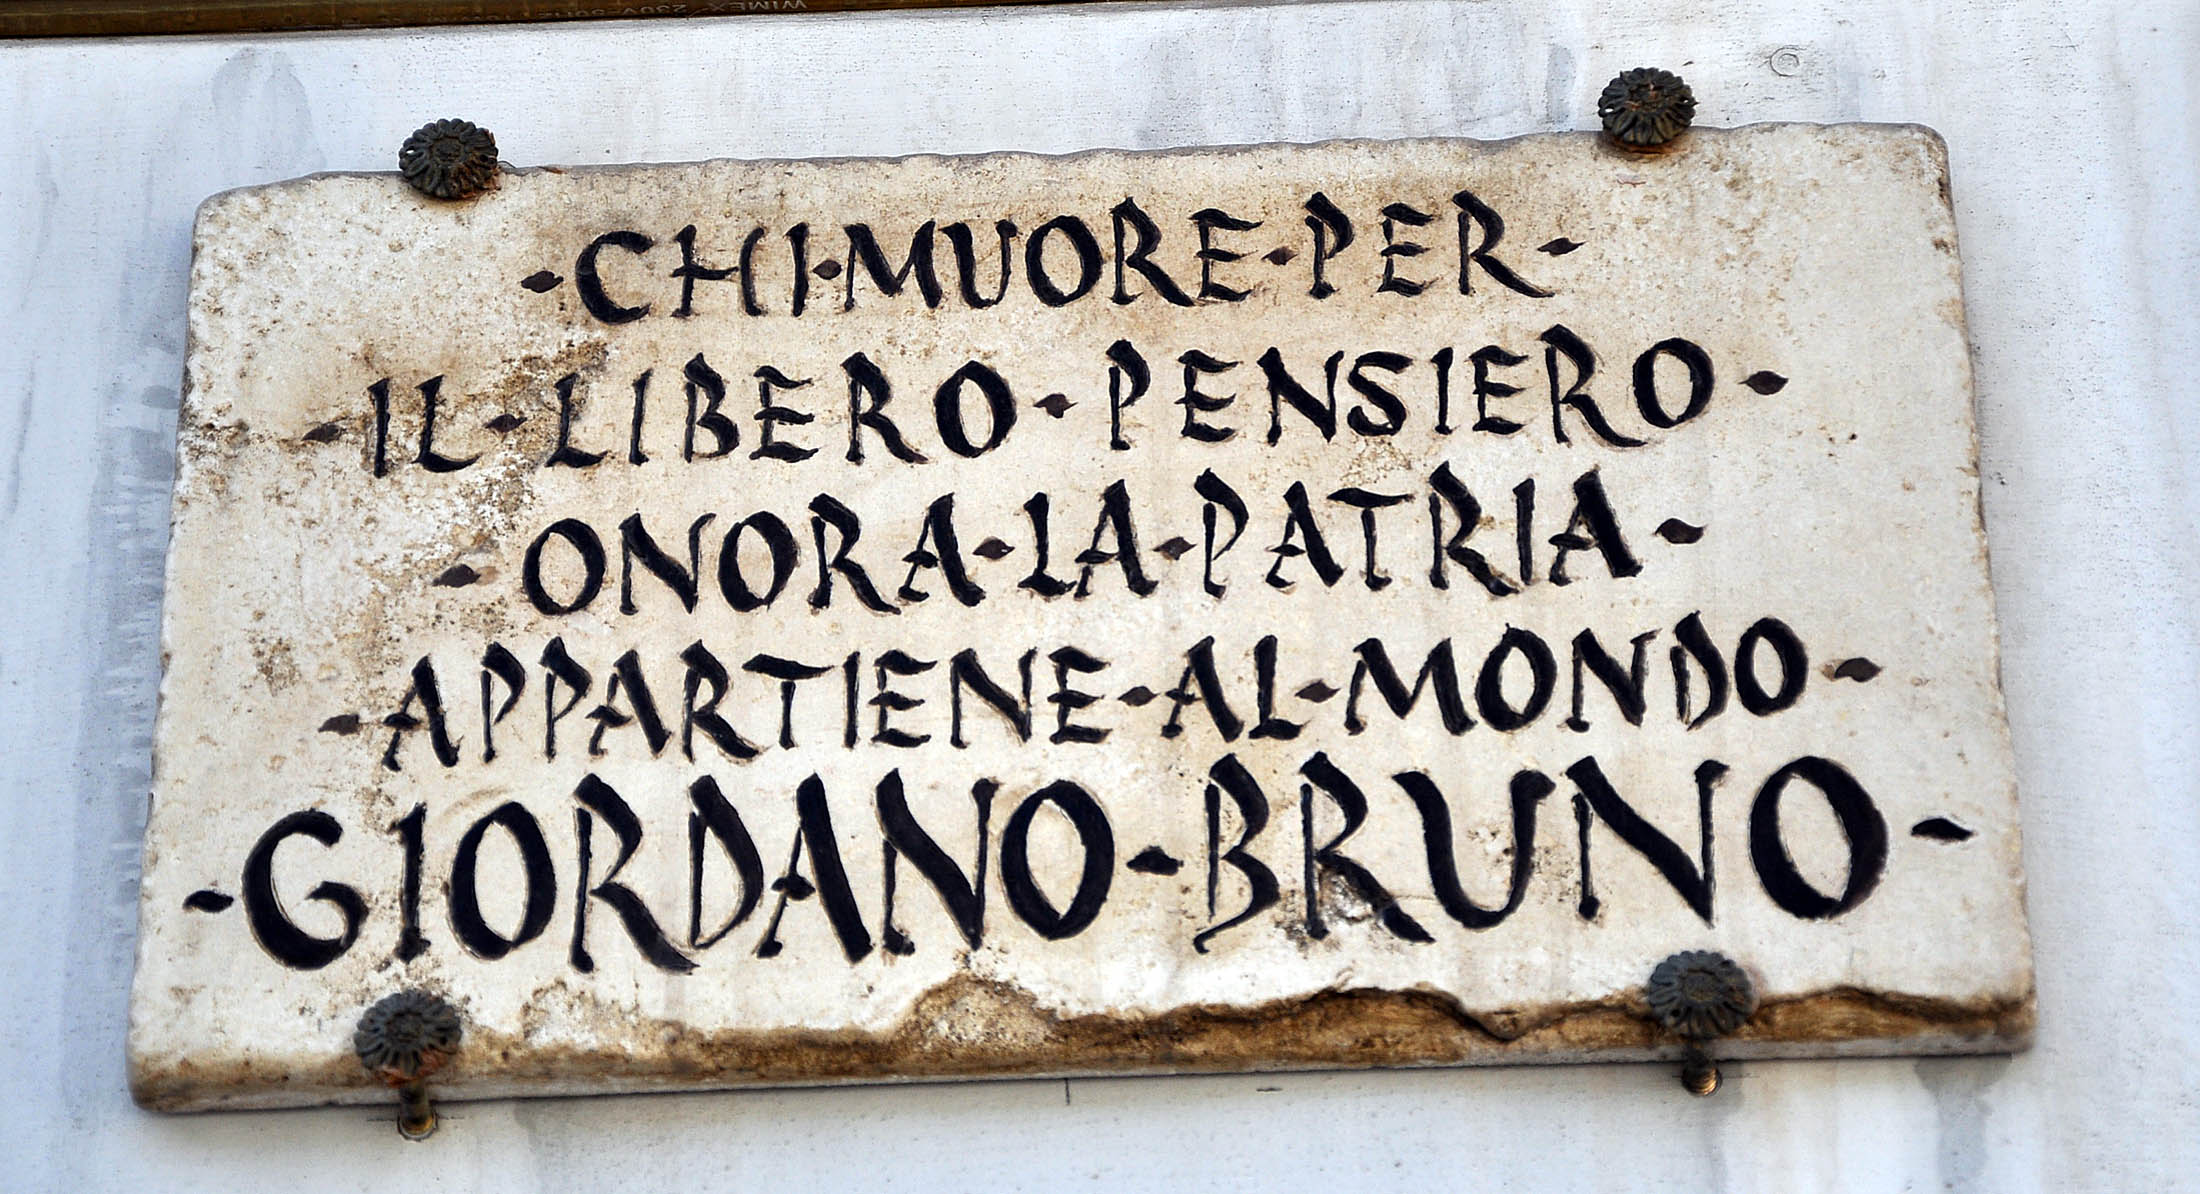 ·CHI·MUORE·PER·
·IL·LIBERO·PENSIERO·
·ONORA·LA·PATRIA·
·APPARTIENE·AL·MONDO·
·GIORDANO·BRUNO·